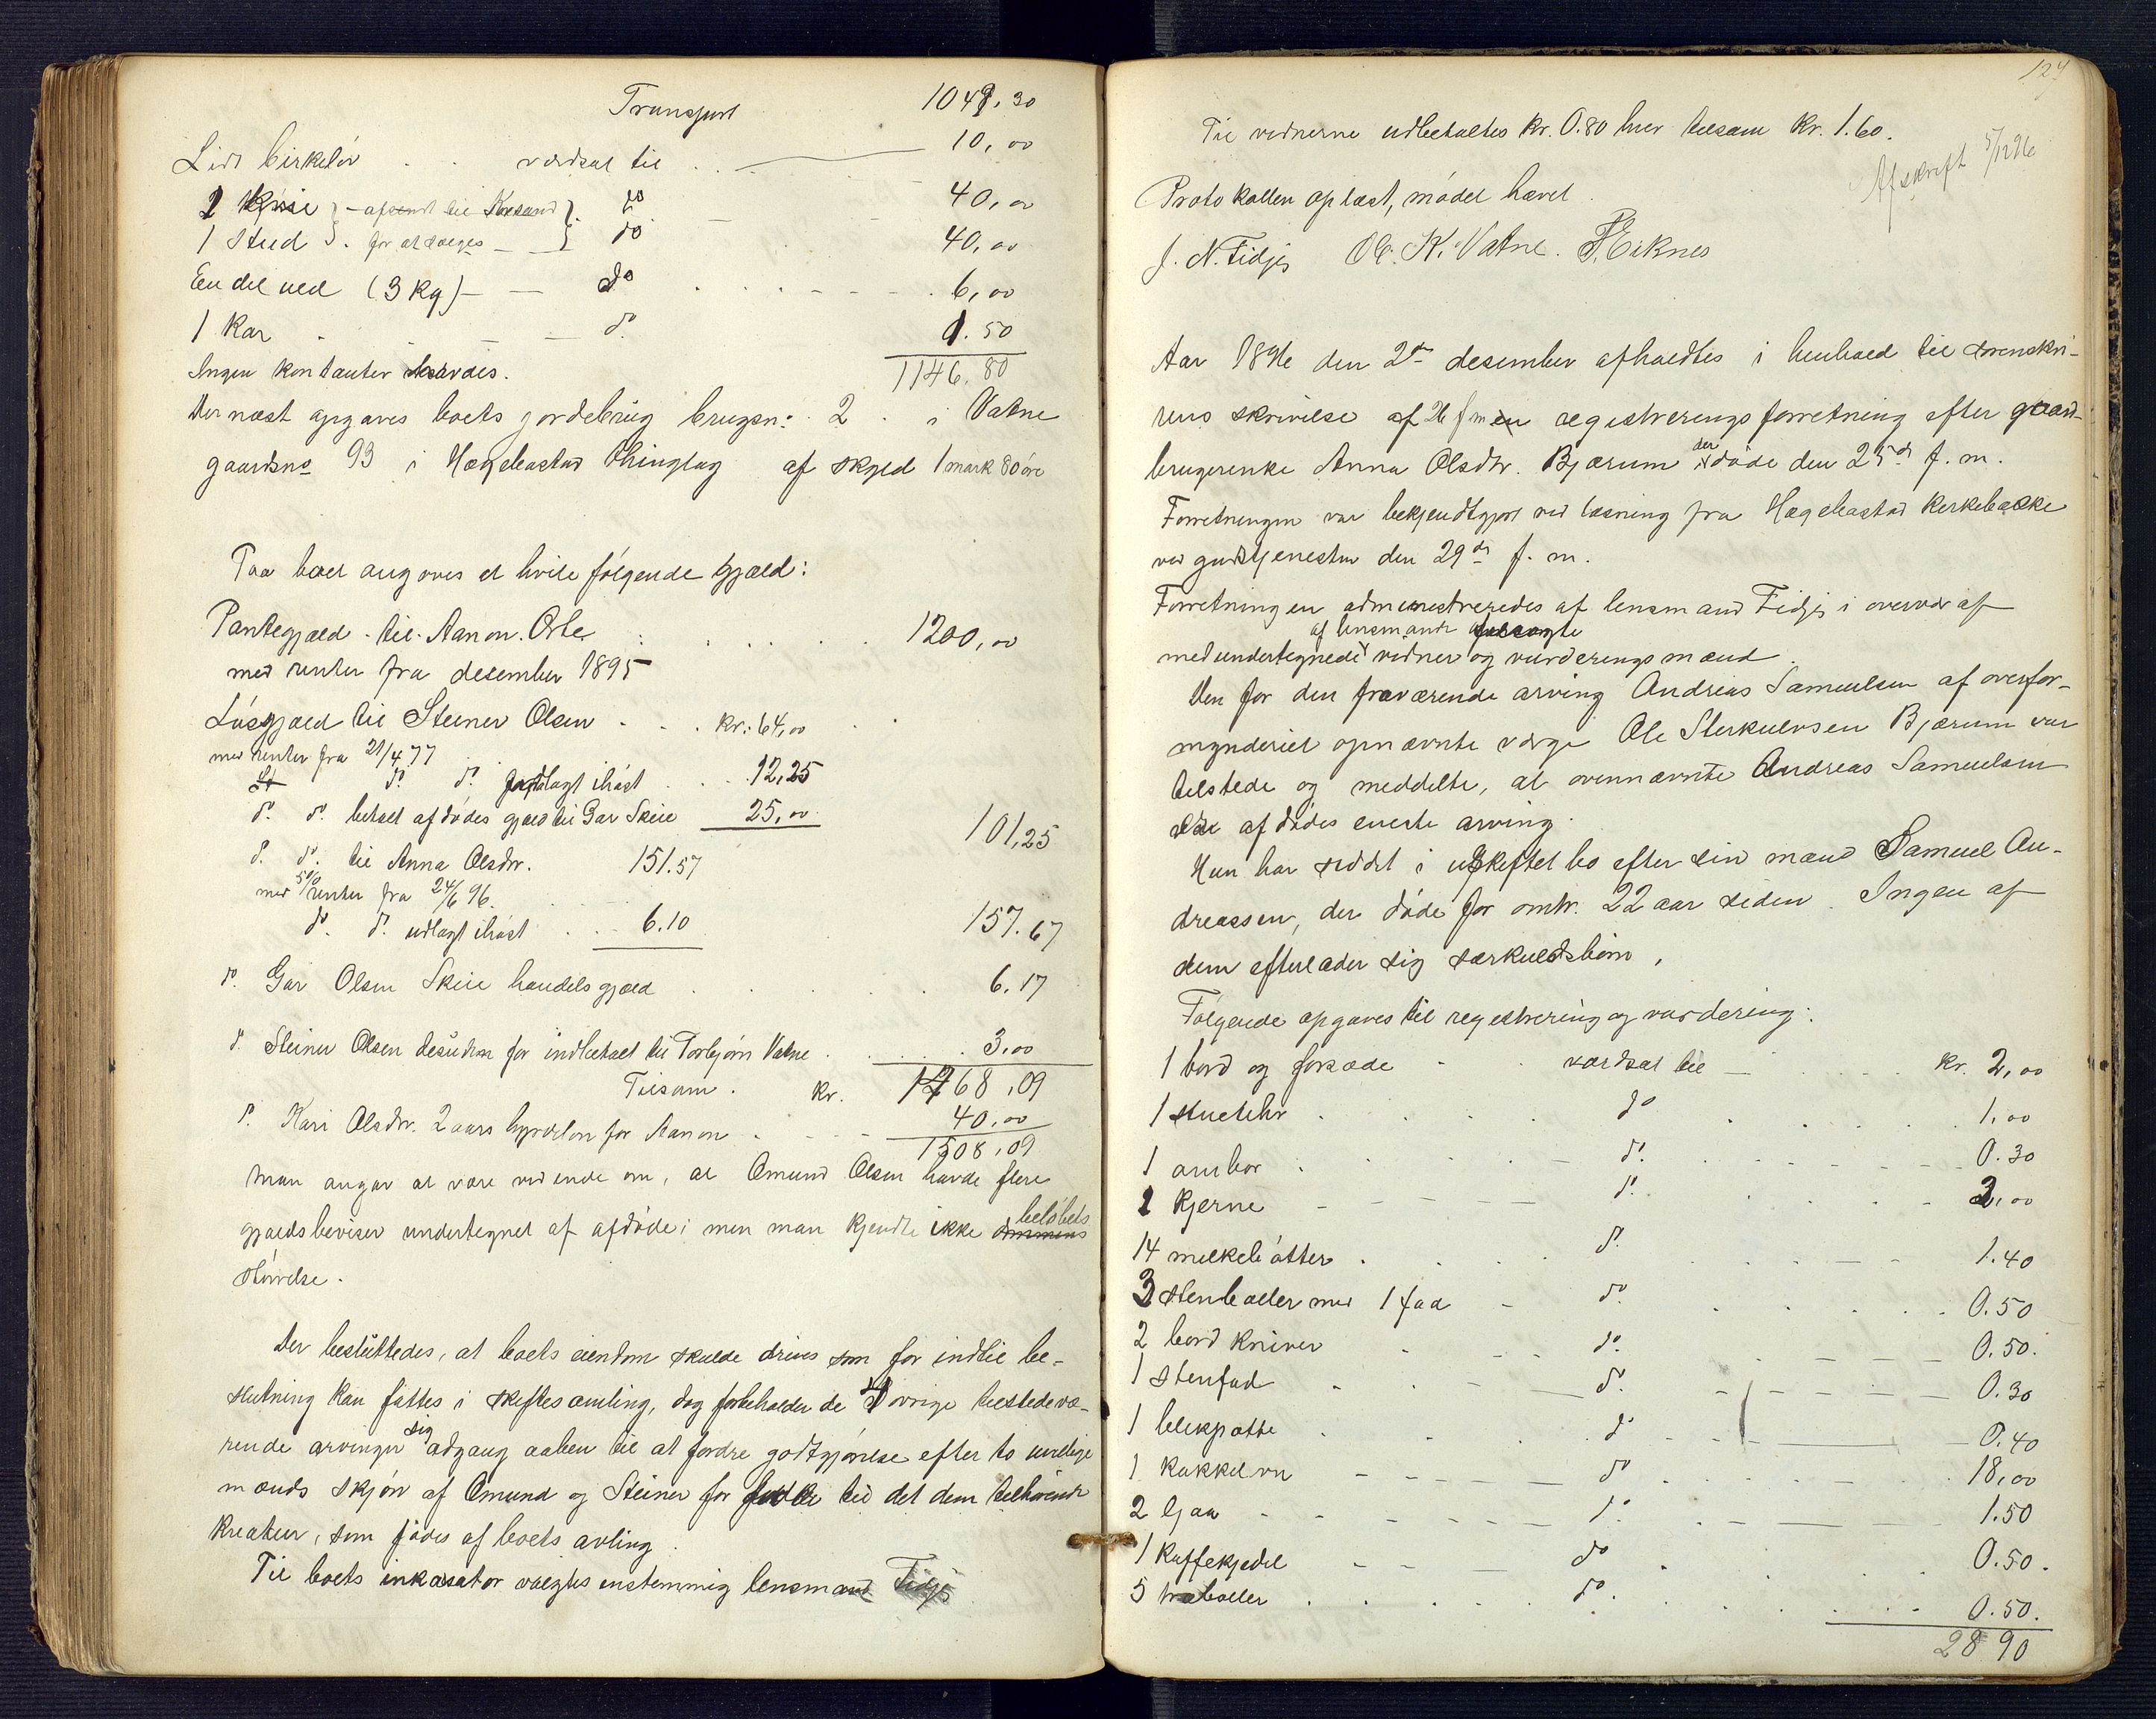 Transport 1049,30
Lidt birkeløv . . værdsat til . . 10,00
1 Kvie } - afsendt til Krsand } do 40,00
1 Stud } . for at sælges } do 40,00
En del uld (3 kg) - do . . . 6,00
1 Kar . do 1.50
Ingen kontanter havdes. 1146.80
Dernæst opgaves boets jordebrug brugsno 2 . i Vatne
gaardsno 93 i Hægebostad thinglag af skyld 1 mark 80 øre
Paa boet angaves at hvile følgende gjæld:
Pantegjæld til Aanon 1200,00
med renter fra desember 1895
Løsgjæld til Steiner Olsen . . . kr: 64,00
med renter fra 21/4 77
do do forlagt ihøst . . 12,25
do do betalt afdødes gjæld til Gar Skeie 25,00 101,25
do do til Anna Olsdtr. 151.57
med 5% renter fra 24/6 96.
do do udlagt ihøst . . 6.10 157.67
do Gar Olsen Skeie handelsgjæld . . . 6.17
do Steiner Olsen desuden for indbetalt til Torbjørn Vatne . . 3,00
Tilsam . kr. 1468,09
do Kari Olsdtr. 2 aars hyrdeløn for Aanon . . 40,00
1508,09
Man angav at være vidende om, at Omund Olsen havde flere
gjældsbeviser undertegnet af afdøde; men man kjendte ikke beløbets
størrelse.
Der besluttedes, at boets eiendom skulde drives som før indtil be-
slutning kan fattes i skiftesamling, dog forbeholder de 4 øvrige tilstedevæ-
rende arvinger sig adgang aaben til at fordre godtgjørelse efter to uvillige
mænds skjøn af Omund og Steiner for foder til det dem tilhørende
kreatur, som fødes af boets avling.
Til boets inkasator valgtes enstemmig lensmand Fidje
127
Til vidnerne udbetaltes kr. 0.80 hver tilsam kr. 1.60.
Afskrift 5/12 96
Protokollen oplæst, mødet hævet.
J. N. Fidje Ol. K. Vatne. T. Eiknes
Aar 1896 den 2den desember afholdtes i henhold til sorenskri-
rens skrivelse af 26 f m en registreringsforretning efter gaard-
brugerenke Anna Olsdtr. Bjærum der døde den 25de f. m.
Forretningen var bekjendtgjort ved læsning fra Hægebostad kirkebakke
ved gudstjenesten den 29de f. m.
Forretningen administreredes af lensmand Fidje i overvær af
af lensmanden tilsagte
medundertegnede vidner og vurderingsmænd.
Den for den fraværende arving Andreas Samuelsen af overfor-
mynderiet opnævnte værge Ole Sterkulvsen Bjærum var
tilstede og meddelte, at ovennævnte Andreas Samuelsen
er afdødes eneste arving.
Hun har siddet i uskiftet bo efter sin mand Samuel An-
dreassen, der døde for omtr. 22 aar siden. Ingen af
dem efterlader sig særkuldsbørn.
Følgende opgaves til registrering og vurdering:
1 bord og forsæde . . værdsat til . . . kr. 2,00
1 stueuhr . . . do . . 1,00
1 ambor . . . do . . 0.30
1 kjerne . . . do . . 2,00
14 melkebøtter . . . do . . 1.40
3 stenboller med 1 fad - do . . 0.50
2 bordkniver . . do . . 0.50.
1 stenfad . . do . . 0.30
1 blikpotte . . do . . 0.40
1 kakkelovn . . do . . 18,00
2 ljaa . . do . . 1.50
1 kaffekjedel . . do . . 0.50.
5 træboller . . do . . 0.50.
28 90